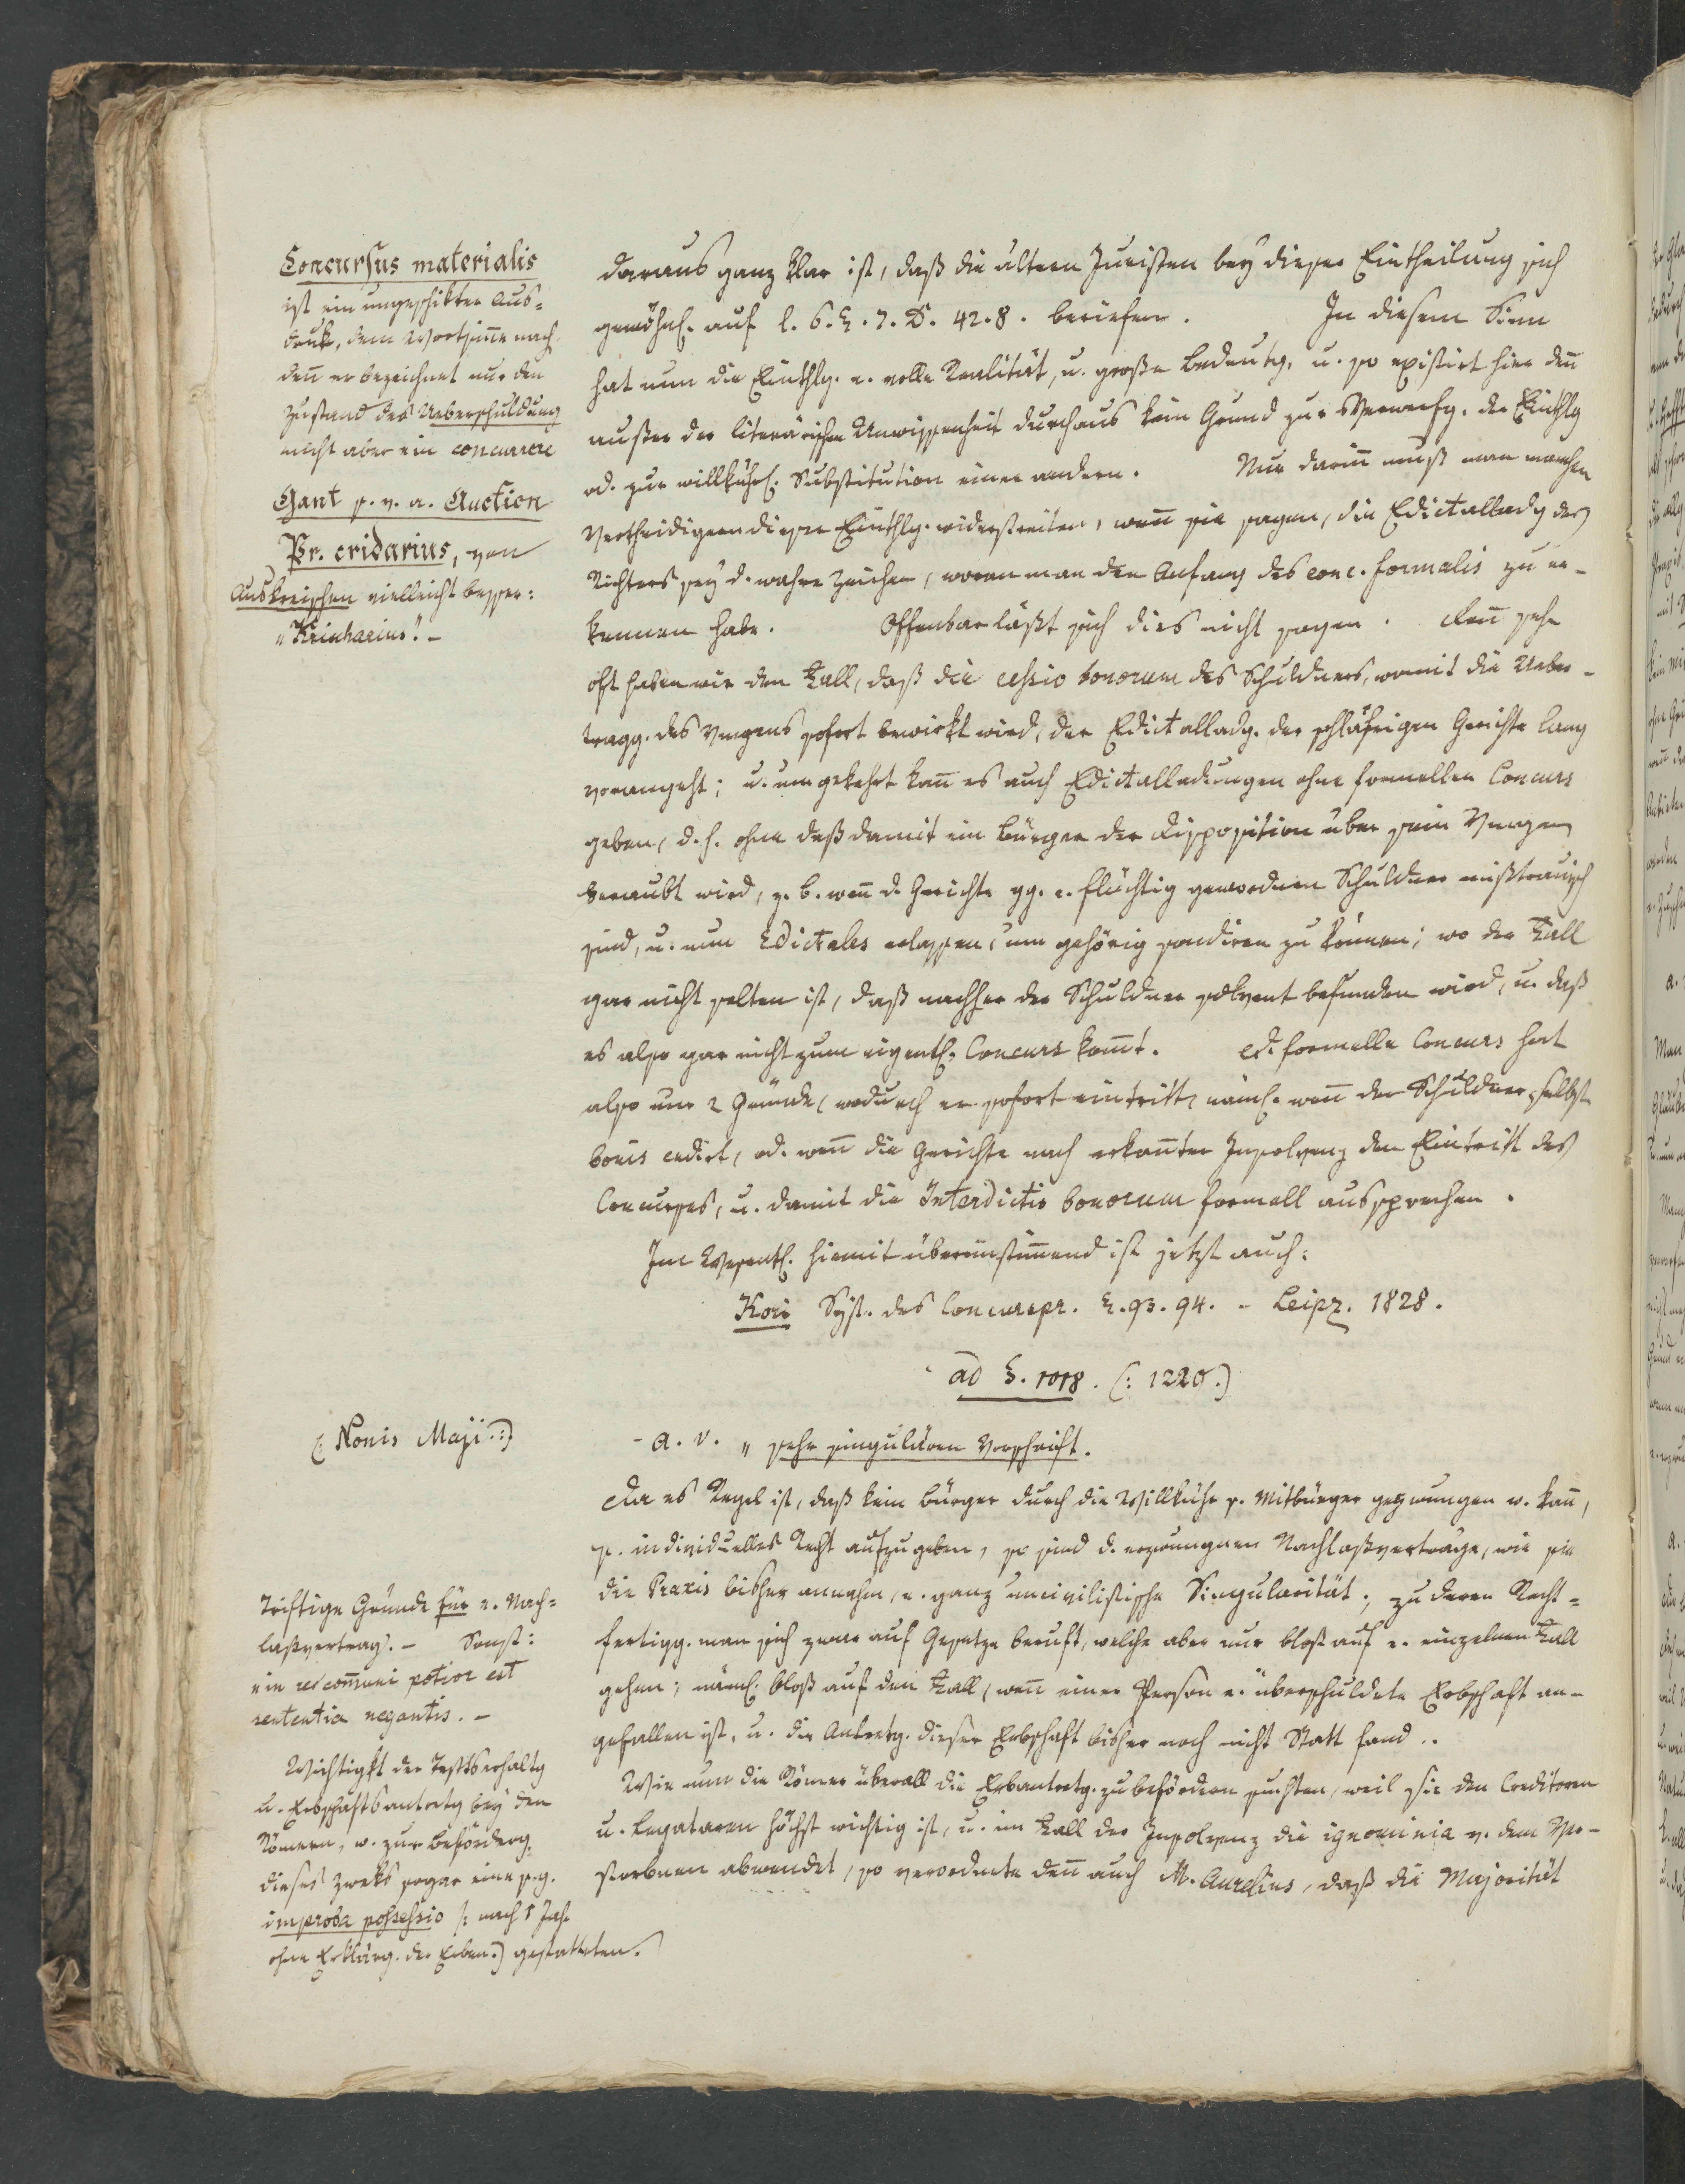 Concursus materialis
ist ein ungeschikter Aus-
druk, dem Wortsinne nach
den̄ er bezeichnet nur den
Zustand der Ueberschuldung
nicht aber ein concurrere
Gant s. v. a. Auction
Pr. cridarius, von
Auskreischen vielleicht besser:
„Krieharius." –
daraus ganz klar ist, daß die ältern Juristen bey dieser Eintheilung sich
gewöhnl. auf l. 6. §. 7. D. 42. 8. beriefen. In diesem Sinn
hat nun die Einthlg. e. volle Realität, u. große Bedeutg. u. so existirt hier den̄
außer der literärischen Unwissenheit durchaus kein Grund zur Verwerfg. der Einthlg
od. zur willkührl. Substitution einer andern. Nur darin̄ muß man manchen
Vertheidigern dieser Einthlg. widerstreiten, wen̄ sie sagen, die Edictalladg des
Richters sey d. wahre Zeichen, woran man den Anfang des conc. formalis zu er-
kennen habe. Offenbar läßt sich dies nicht sagen. Den̄ sehr
oft haben wir den Fall, daß die cessio bonorum des Schuldners, womit die Ueber-
tragg. des Vmgens sofort bewirkt wird, der Edictalladg. der schläfrigen Gerichte lang
vorangeht; u. umgekehrt kan̄ es auch Edictalladungen ohne formellen Concurs
geben, d. h. ohne daß damit ein Bürger der Disposition über sein Vmgen
beraubt wird, z. B. wen̄ d. Gerichte gg. e. flüchtig gewordnen Schuldner mißtrauisch
sind, u. nun Edictales erlassen, um gehörig sondiren zu können; wo der Fall
gar nicht selten ist, daß nachher der Schuldner solvent befunden wird, u. daß
es also gar nicht zum eigentl. Concurs kom̄t. D. formelle Concurs hat
also nur 2 Gründe, wodurch er sofort eintritt, näml. wen̄ der Schuldner selbst
bonis cedirt, od. wen̄ die Gerichte nach erkan̄ter Insolvenz den Eintritt des
Concurses, u. damit die Interdictio bonorum formell aussprechen.
Im Wesentl. hiemit übereinstim̄end ist jetzt auch:
Kori Syst. des Concurspr. §. 93. 94. - Leipz. 1828.
ad §. 1018. (: 1220.)
(: Nonis Maji. :)
- a. v. „ sehr singulären Vorschrift.
Da es Regel ist, daß kein Bürger durch die Willkühr s. Mitbürger gezwungen w. kan̄,
s. individuelles Recht aufzugeben, so sind d. erzwungnen Nachlaßverträge, wie sie
die Praxis bisher annahm, e. ganz uncivilistische Singularität; zu deren Recht-
fertigg. man sich zwar auf Gesetze beruft, welche aber nur bloß auf e. einzelnen Fall
gehen; näml. bloß auf den Fall, wen̄ einer Person e. überschuldete Erbschaft an-
gefallen ist, u. die Antretg. dieser Erbschaft bisher noch nicht Statt fand..
Wie nun die Römer überall die Erbantretg. zu befördern suchten, weil sie den Creditoren
u. Legataren höchst wichtig ist, u. im Fall der Insolvenz die ignominia v. dem Ver-
storbnen abwendet, so verordnete den̄ auch M. Aurelius, daß die Majorität
Triftige Gründe für e. Nach-
laßvertrag. - Sonst:
„in re com̄uni potior est
sententia negantis. –
Wichtigkt der Testtserhaltg
u. Erbschaftsantretg bey den
Römern, w. zur Beförderg.
dieses Zweks sogar eine s. g.
improba possessio (: nach 1 Jahr
ohne Erklärg. der Erben.) gestatteten.